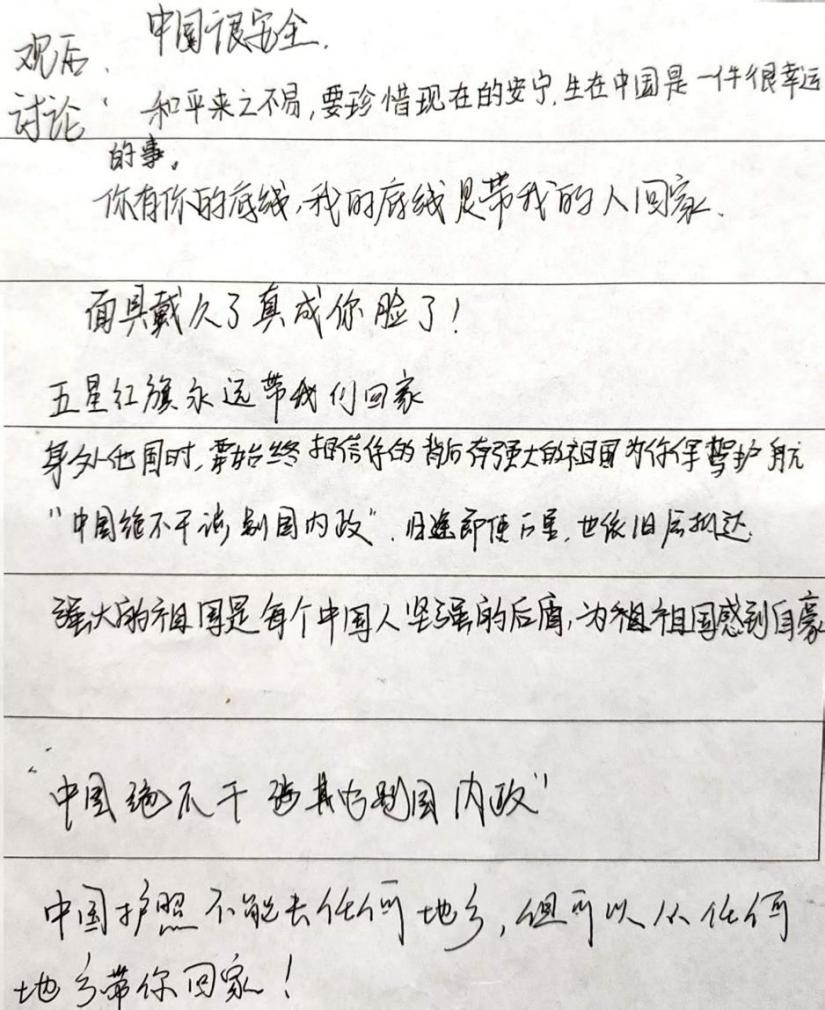 中国很安全.
观后
讨论: 和平来之不易,要珍惜现在的安宁.生在中国是一件很幸运
的事。
你有你的底线,我的底线是带我的人回家.
面具戴久了真成你脸了!
五星红旗永远带我们回家
身处他国时,要始终相信你的背后有强大的祖国为你保驾护航
"中国绝不干涉别国内政".归途即使万里,也依旧后抵达.
强大的祖国是每个中国人坚强的后盾,为祖国感到自豪
"中国绝不干涉别国内政"
中国护照不能去任何地方,但可以从任何
地方带你回家!